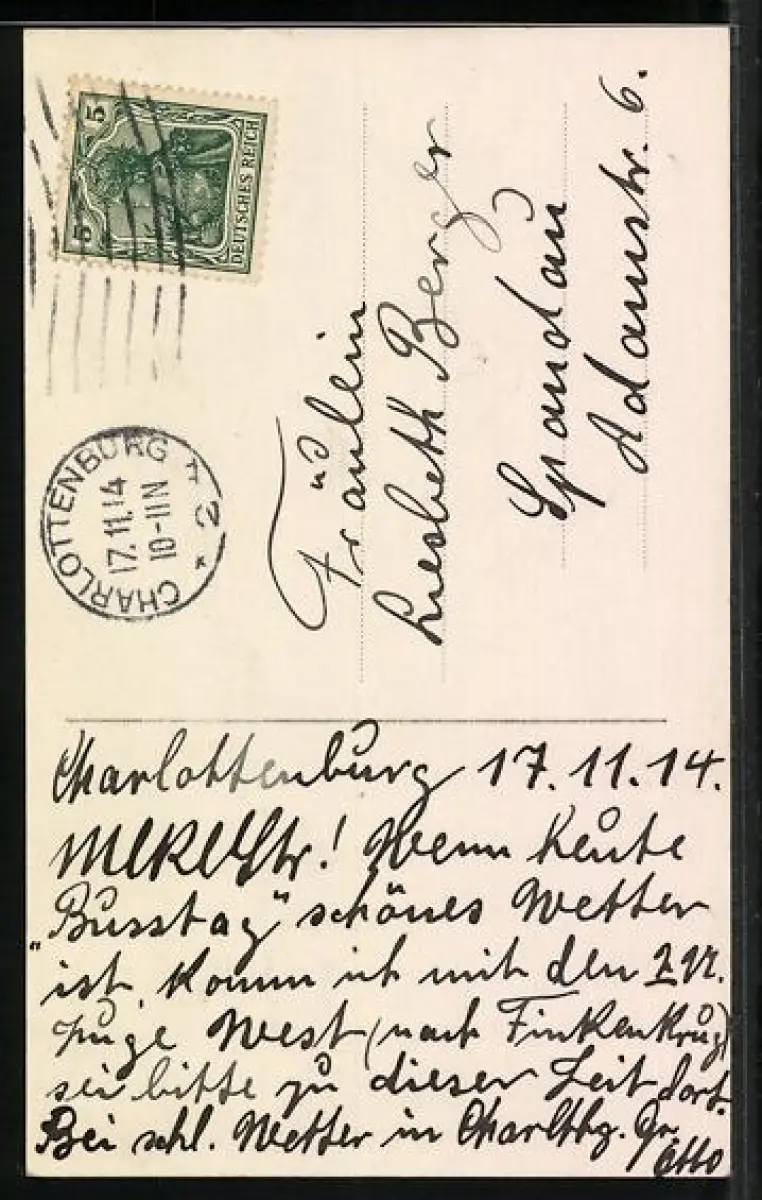 5
5
DEUTSCHES REICH
CHARLOTTENBURG 2
17.11.14
10-11N
Fräulein
Liesbeth Berger
Spandau
Adamstr. 6.
Charlottenburg 17.11.14.
Wenn heute
"Busstag" schönes Wetter
ist, komm ich mit den
zuge West (nach Finkenkrug)
sei bitte zu dieser Zeit dort.
Bei schl. Wetter in Charlttbg. Gr.
Otto